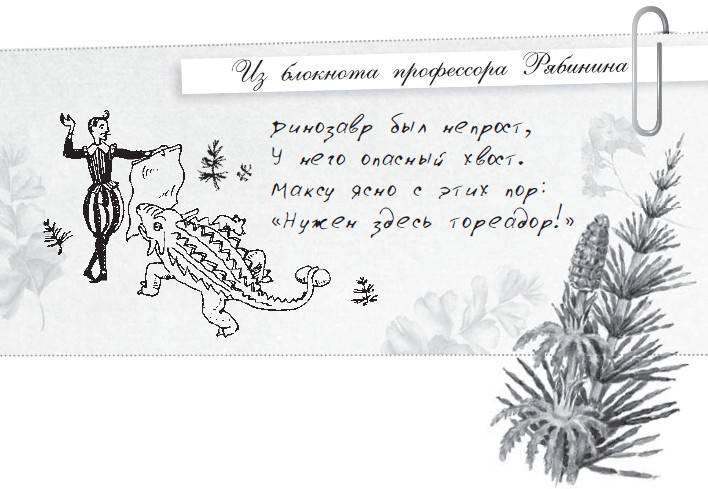 Из блокнота профессора Рябинина
Динозавр был непрост,
У него опасный хвост.
Максу ясно с этих пор:
«Нужен здесь тореадор!»